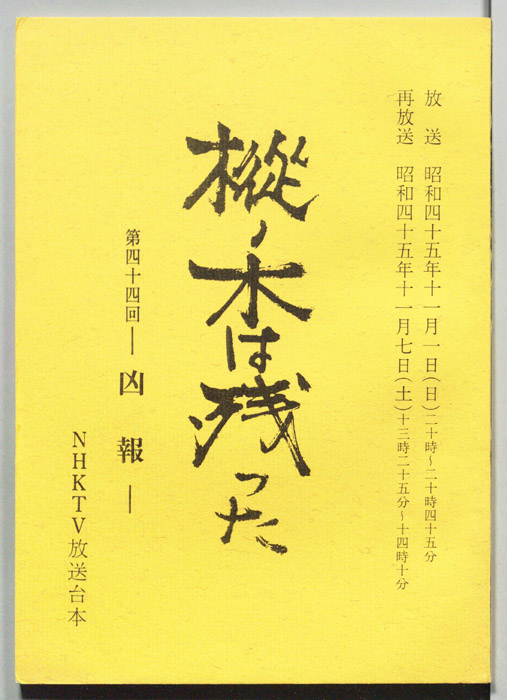 放送　昭和四十五年十一月一日(日)二十時～二十時四十五分
再放送　昭和四十五年十一月七日(土)十三時二十五分～十四時十分
樅ノ木は残った
第四十四回―凶報―
NHKTV放送台本